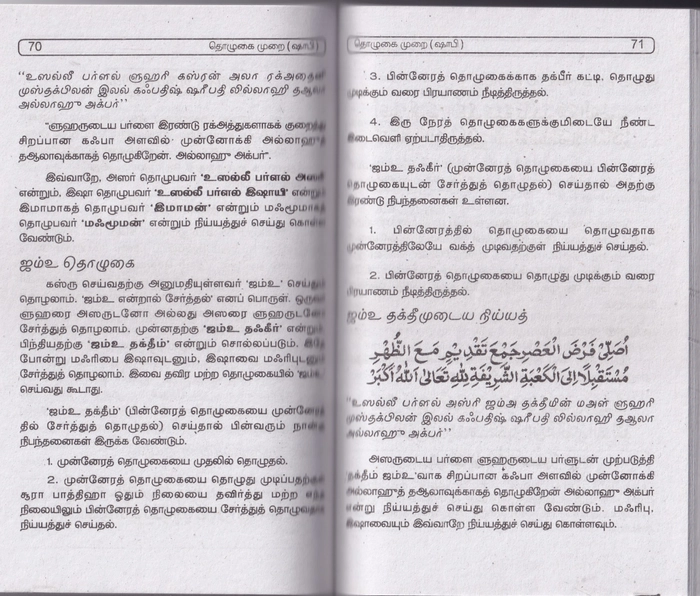 70 தொழுகை முறை (ஷாபி)
‘‘உஸல்லீ பர்ளல் ளுஹரி கஸ்ரன் அலா ரக்அதைனி
முஸ்தக்பிலன் இலல் கஃபதிஷ் ஷரீபதி லில்லாஹி தஆலா
அல்லாஹு அக்பர்’’
“ளுஹருடைய பர்ளை இரண்டு ரக்அத்துகளாகக் குறைத்து
சிறப்பான கஃபா அளவில் முன்னோக்கி அல்லாஹு
தஆலாவுக்காகத் தொழுகிறேன். அல்லாஹு அக்பர்”.
இவ்வாறே, அஸர் தொழுபவர் ‘உஸல்லீ பர்ளல் அஸரி’
என்றும், இஷா தொழுபவர் ‘உஸல்லீ பர்ளல் இஷாயி’ என்றும்
இமாமாகத் தொழுபவர் ‘இமாமன்’ என்றும் மஃமூமாகத்
தொழுபவர் ‘மஃமூமன்’ என்றும் நிய்யத்துச் செய்து கொள்ள
வேண்டும்.
ஜம்உ தொழுகை
கஸ்ரு செய்வதற்கு அனுமதியுள்ளவர் ‘ஜம்உ’ செய்து
தொழலாம். ‘ஜம்உ என்றால் சேர்த்தல்’ எனப் பொருள். ஒருவர்
ளுஹரை அஸருடனோ அல்லது அஸரை ளுஹருடனோ
சேர்த்துத் தொழலாம். முன்னதற்கு ‘ஜம்உ தஃகீர்’ என்றும்
பிந்தியதற்கு ‘ஜம்உ தக்தீம்’ என்றும் சொல்லப்படும். இதே
போன்று மஃரிபை இஷாவுடனும், இஷாவை மஃரிபுடனும்
சேர்த்துத் தொழலாம். இவை தவிர மற்ற தொழுகையில் ‘ஜம்உ’
செய்வது கூடாது.
‘ஜம்உ தக்தீம்’ (பின்னேரத் தொழுகையை முன்னேரத்
தில் சேர்த்துத் தொழுதல்) செய்தால் பின்வரும் நான்கு
நிபந்தனைகள் இருக்க வேண்டும்.
1. முன்னேரத் தொழுகையை முதலில் தொழுதல்.
2. முன்னேரத் தொழுகையை தொழுது முடிப்பதற்குள்
சூரா பாத்திஹா ஓதும் நிலையை தவிர்த்து மற்ற எந்த
நிலையிலும் பின்னேரத் தொழுகையை சேர்த்துத் தொழுவதாக
நிய்யத்துச் செய்தல்.
தொழுகை முறை (ஷாபி) 71
3. பின்னேரத் தொழுகைக்காக தக்பீர் கட்டி, தொழுது
முடிக்கும் வரை பிரயாணம் நீடித்திருத்தல்.
4. இரு நேரத் தொழுகைகளுக்குமிடையே நீண்ட
இடைவெளி ஏற்படாதிருத்தல்.
‘ஜம்உ தஃகீர்’ (முன்னேரத் தொழுகையை பின்னேரத்
தொழுகையுடன் சேர்த்துத் தொழுதல்) செய்தால் அதற்கு
இரண்டு நிபந்தனைகள் உள்ளன.
1. பின்னேரத்தில் தொழுகையை தொழுவதாக
முன்னேரத்திலேயே வக்த் முடிவதற்குள் நிய்யத்துச் செய்தல்.
2. பின்னேரத் தொழுகையை தொழுது முடிக்கும் வரை
பிரயாணம் நீடித்திருத்தல்.
ஜம்உ தக்தீமுடைய நிய்யத்
اُصَلِّىْ فَرْضَ الْعَصْرِ جَمْعَ تَقْدِيْمٍ مَعَ الظُّهْرِ
مُسْتَقْبِلًا اِلَى الْكَعْبَةِ الشَّرِيْفَةِ لِلّٰهِ تَعَالٰى اَللّٰهُ اَكْبَرُ
‘‘உஸல்லீ பர்ளல் அஸ்ரி ஜம்அ தக்தீமின் மஅள் ளுஹரி
முஸ்தக்பிலன் இலல் கஃபதிஷ் ஷரீபதி லில்லாஹி தஆலா
அல்லாஹு அக்பர்’’
அஸருடைய பர்ளை ளுஹருடைய பர்ளுடன் முற்படுத்தி
‘தக்தீம் ஜம்உ’வாக சிறப்பான கஃபா அளவில் முன்னோக்கி
அல்லாஹுத் தஆலாவுக்காகத் தொழுகிறேன் அல்லாஹு அக்பர்
என்று நிய்யத்துச் செய்து கொள்ள வேண்டும். மஃரிபு,
இஷாவையும் இவ்வாறே நிய்யத்துச் செய்து கொள்ளவும்.